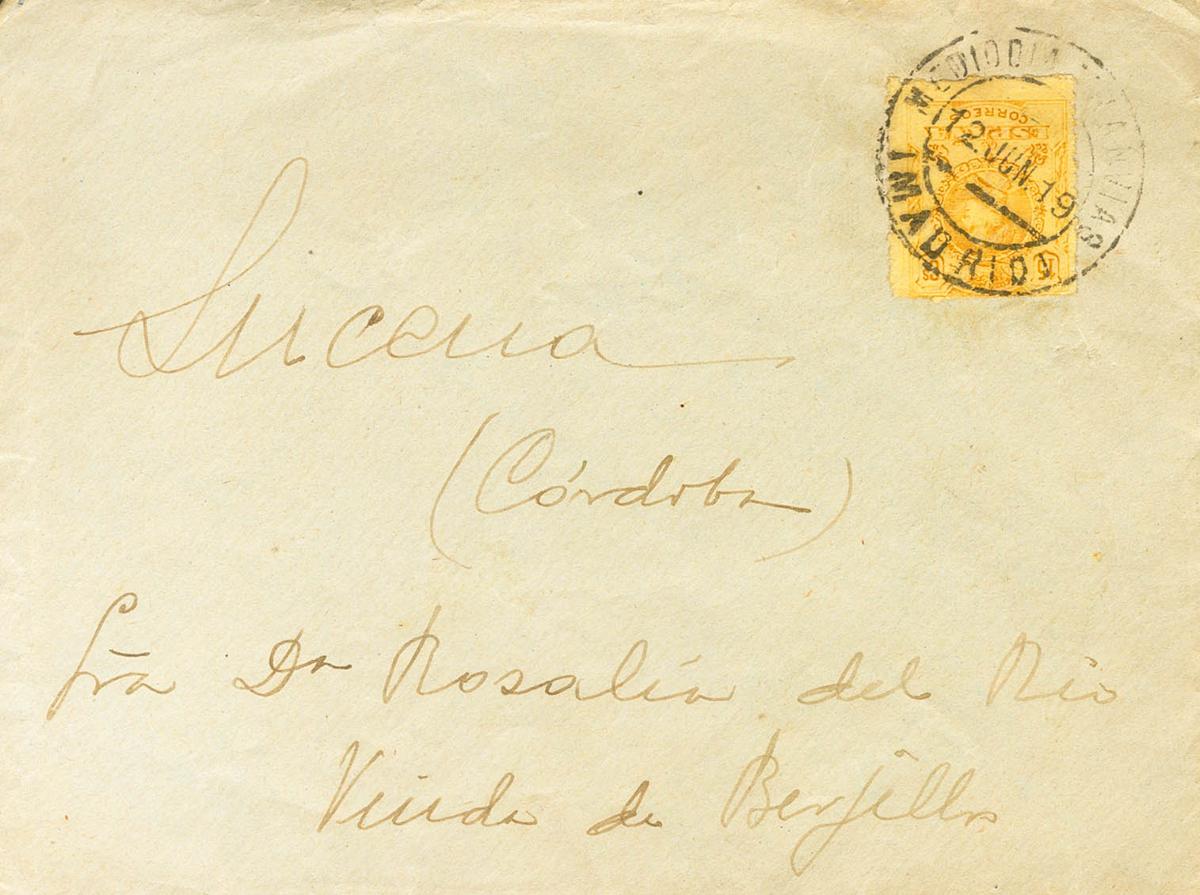 MEDIODIA
12 JUN 19
MADRID
CORREOS
15
Lucena
(Córdoba)
Sra Dª Rosalía del Rio
Viuda de Berjillos